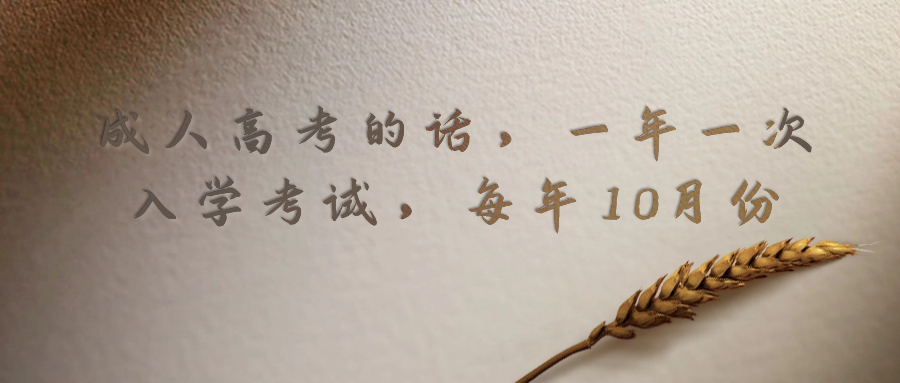 成人高考的话，一年一次
入学考诚，每年10月份